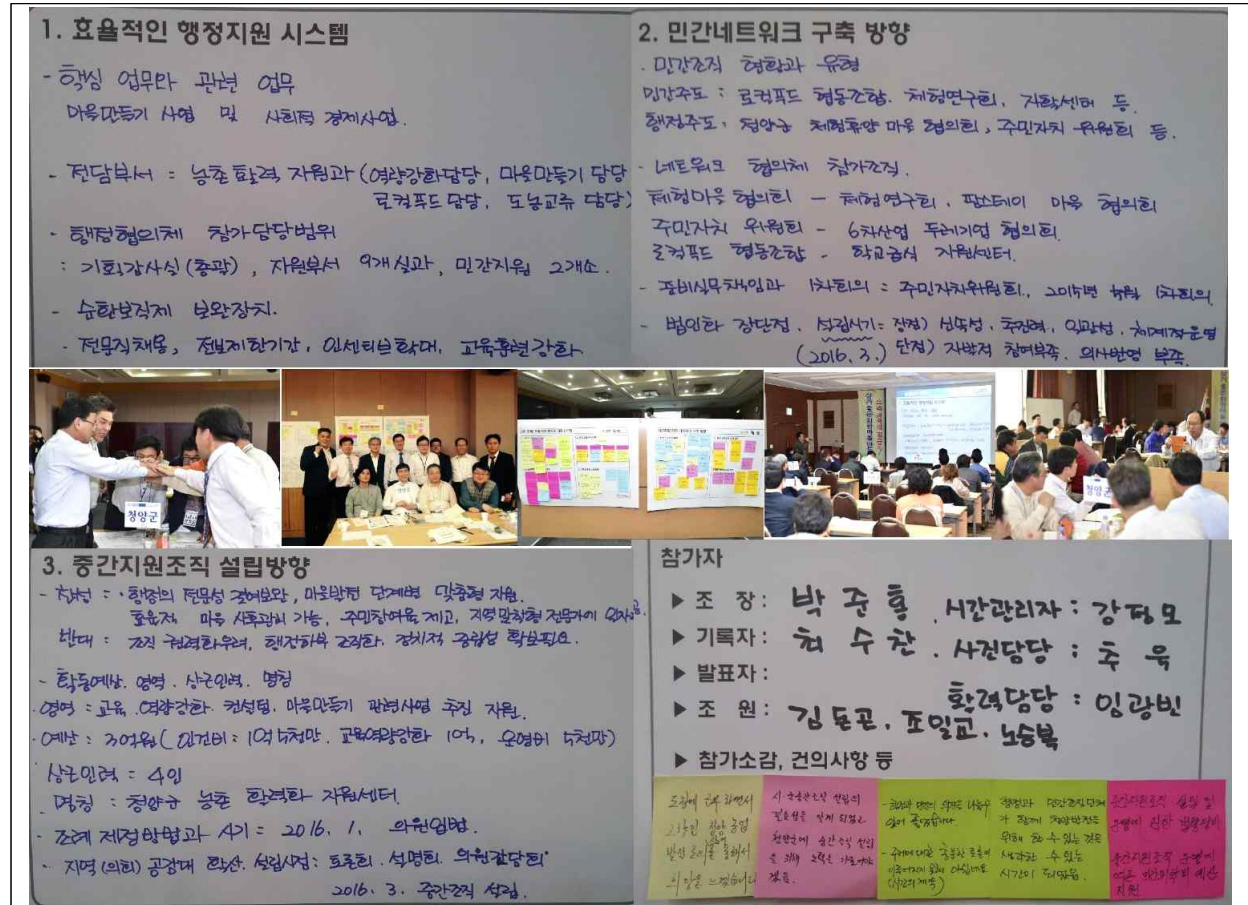 1. 효율적인 행정지원 시스템
- 핵심 업무와 관련 업무
마을만들기 사업 및 사회적 경제사업.
- 전담부서 = 농촌활력 지원과 (역량강화담당, 마을만들기 담당
로컬푸드담당, 도농교류 담당)
- 행정협의체 참가담당범위
: 기획감사실(총괄), 지원부서 9개실과, 민간지원 2개소.
- 순환보직제 보완장치.
- 전문직채용, 전보제한기간, 인센티브확대, 교육훈련강화
2. 민간네트워크 구축 방향
. 민간조직 현황과 유형
민간주도 : 로컬푸드 협동조합. 체험연구회, 자활센터 등.
행정주도. 청양군 체험휴양 마을 협의회, 주민자치 위원회 등.
- 네트워크 협의체 참가조직.
체험마을 협의회 - 체험연구회, 팜스테이 마을 협의회
주민자치 위원회 - 6차산업 두레기업 협의회.
로컬푸드 협동조합 - 학교급식 지원센터.
- 준비실무책임과 1차회의 = 주민자치위원회, 2015년 1차회의.
- 법인화 장단점. 설립시기 = 장점) 신속성, 추진력, 일관성, 체계적운영
(2016. 3.) 단점) 자발적 참여부족. 의사반영 부족
청양군
청양군
3. 중간지원조직 설립방향
- 찬성 = · 행정의 전문성 결여보완, 마을발전 단계별 맞춤형 지원.
효율적 마을 사후관리 가능, 주민참여육 제고, 지역밀착형 전문가에
반대 : 조직 권력화우려, 행정하부 조직화. 정치적 중립성 확보필요.
- 활동예산. 영역. 상근인력. 명칭
. 영역 = 교육. 역량강화. 컨설팅. 마을만들기 관련사업 추진 지원.
. 예산 : 3억원 (인건비 : 1억5천만. 교육역량강화 1억, 운영비 5천만)
상근인력 = 4인
. 명칭 : 청양군 농촌 활력화 지원센터.
- 조례 제정방법과 시기 = 2016. 1. 의원입법.
- 지역(의회) 공감대 확산. 설립시점 : 토론회. 설명회. 의원간담회
2016. 3. 중간조직 설립.
참가자
▶ 조 장 : 박준홍. 시간관리자 : 강평모
▶ 기록자 : 최수찬. 사진담당 : 추육
▶ 발표자 :
활력담당 : 임광빈
▶ 조 원 : 김돈곤. 조일교. 노승복
▶ 참가소감, 건의사항 등
시 중간조직 설립의
필요성을 알게 되었고
청양군에 중간조직 설립
을 위해 노력을
행정과 민간조직단체
가 함께 청양발전을
위해 할 수 있는 것을
생각할 수 있는
시간이 되었음.
중간지원조직 설립 및
중간지원조직 운영에
지원